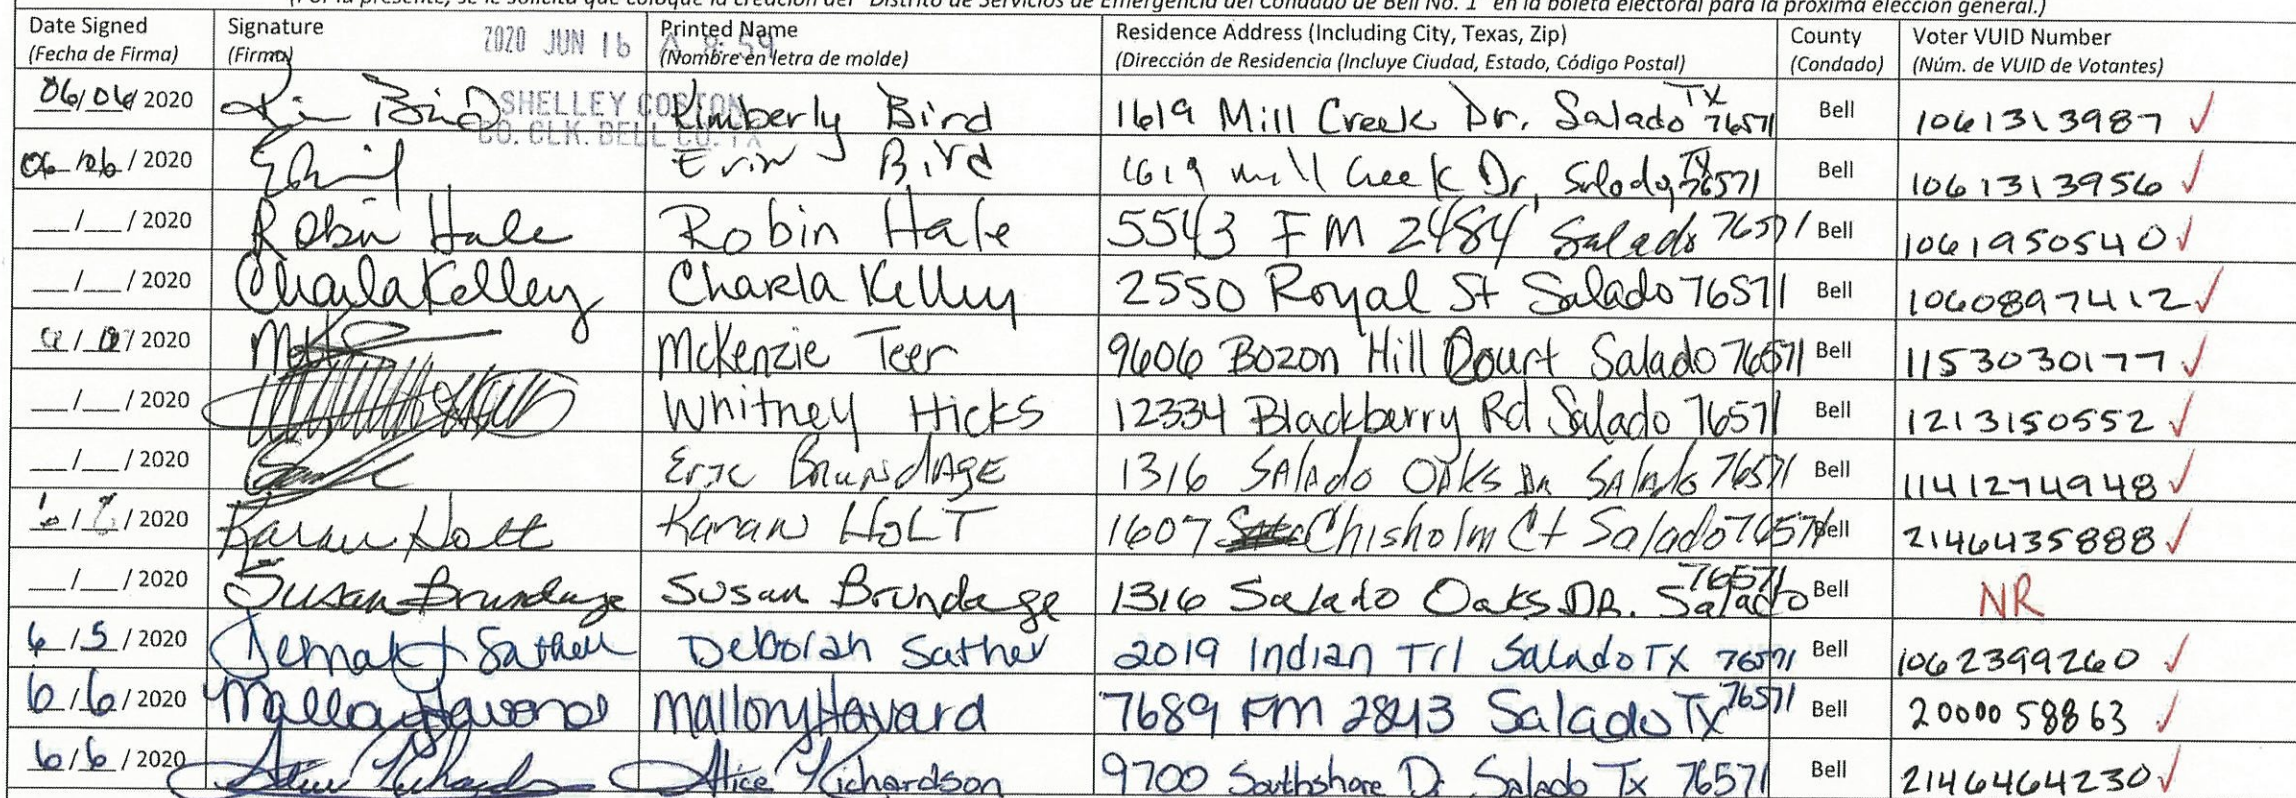 (Por la presente, se le solicita que coloque la creación del "Distrito de Servicios de Emergencia del Condado de Bell No. 1" en la boleta electoral para la próxima elección general.)
Date Signed Signature Printed Name Residence Address (Including City, Texas, Zip) County Voter VUID Number
(Fecha de Firma) (Firma) (Nombre en letra de molde) (Dirección de Residencia (Incluye Ciudad, Estado, Código Postal) (Condado) (Núm. de VUID de Votantes)
2020 JUN 16 A 8:59
SHELLEY COSTON
CO. CLK. BELL CO. TX
06/06/2020 Kim Bird Kimberly Bird 1619 Mill Creek Dr. Salado TX 76571 Bell 1061313987 ✓
06/06/2020 Erin Bird 1619 Mill Creek Dr, Salado, TX 76571 Bell 1061313956 ✓
__/__/2020 Robin Hale Robin Hale 5543 FM 2484 Salado 76571 Bell 1061950540 ✓
__/__/2020 Charla Kelley Charla Kelley 2550 Royal St Salado 76571 Bell 1060897412 ✓
/2020 McKenzie Teer 9606 Bozon Hill Court Salado 76571 Bell 1153030177 ✓
__/__/2020 Whitney Hicks 12334 Blackberry Rd Salado 76571 Bell 1213150552 ✓
__/__/2020 Eric Brundage 1316 Salado Oaks Dr Salado 76571 Bell 1141274948 ✓
6/ /2020 Karan Holt Karan HOLT 1607 Chisholm Ct Salado 76571 Bell 2146435888 ✓
__/__/2020 Susan Brundage Susan Brundage 1316 Salado Oaks DR. Salado 76571 Bell NR
6/5/2020 Sather Deborah Sather 2019 Indian Trl Salado TX 76571 Bell 1062399260 ✓
6/6/2020 Mallory Havard Mallory Havard 7689 FM 2843 Salado TX 76571 Bell 2000058863 ✓
6/6/2020 Alice Richardson Alice Richardson 9700 Southshore Dr Salado Tx 76571 Bell 2146464230 ✓